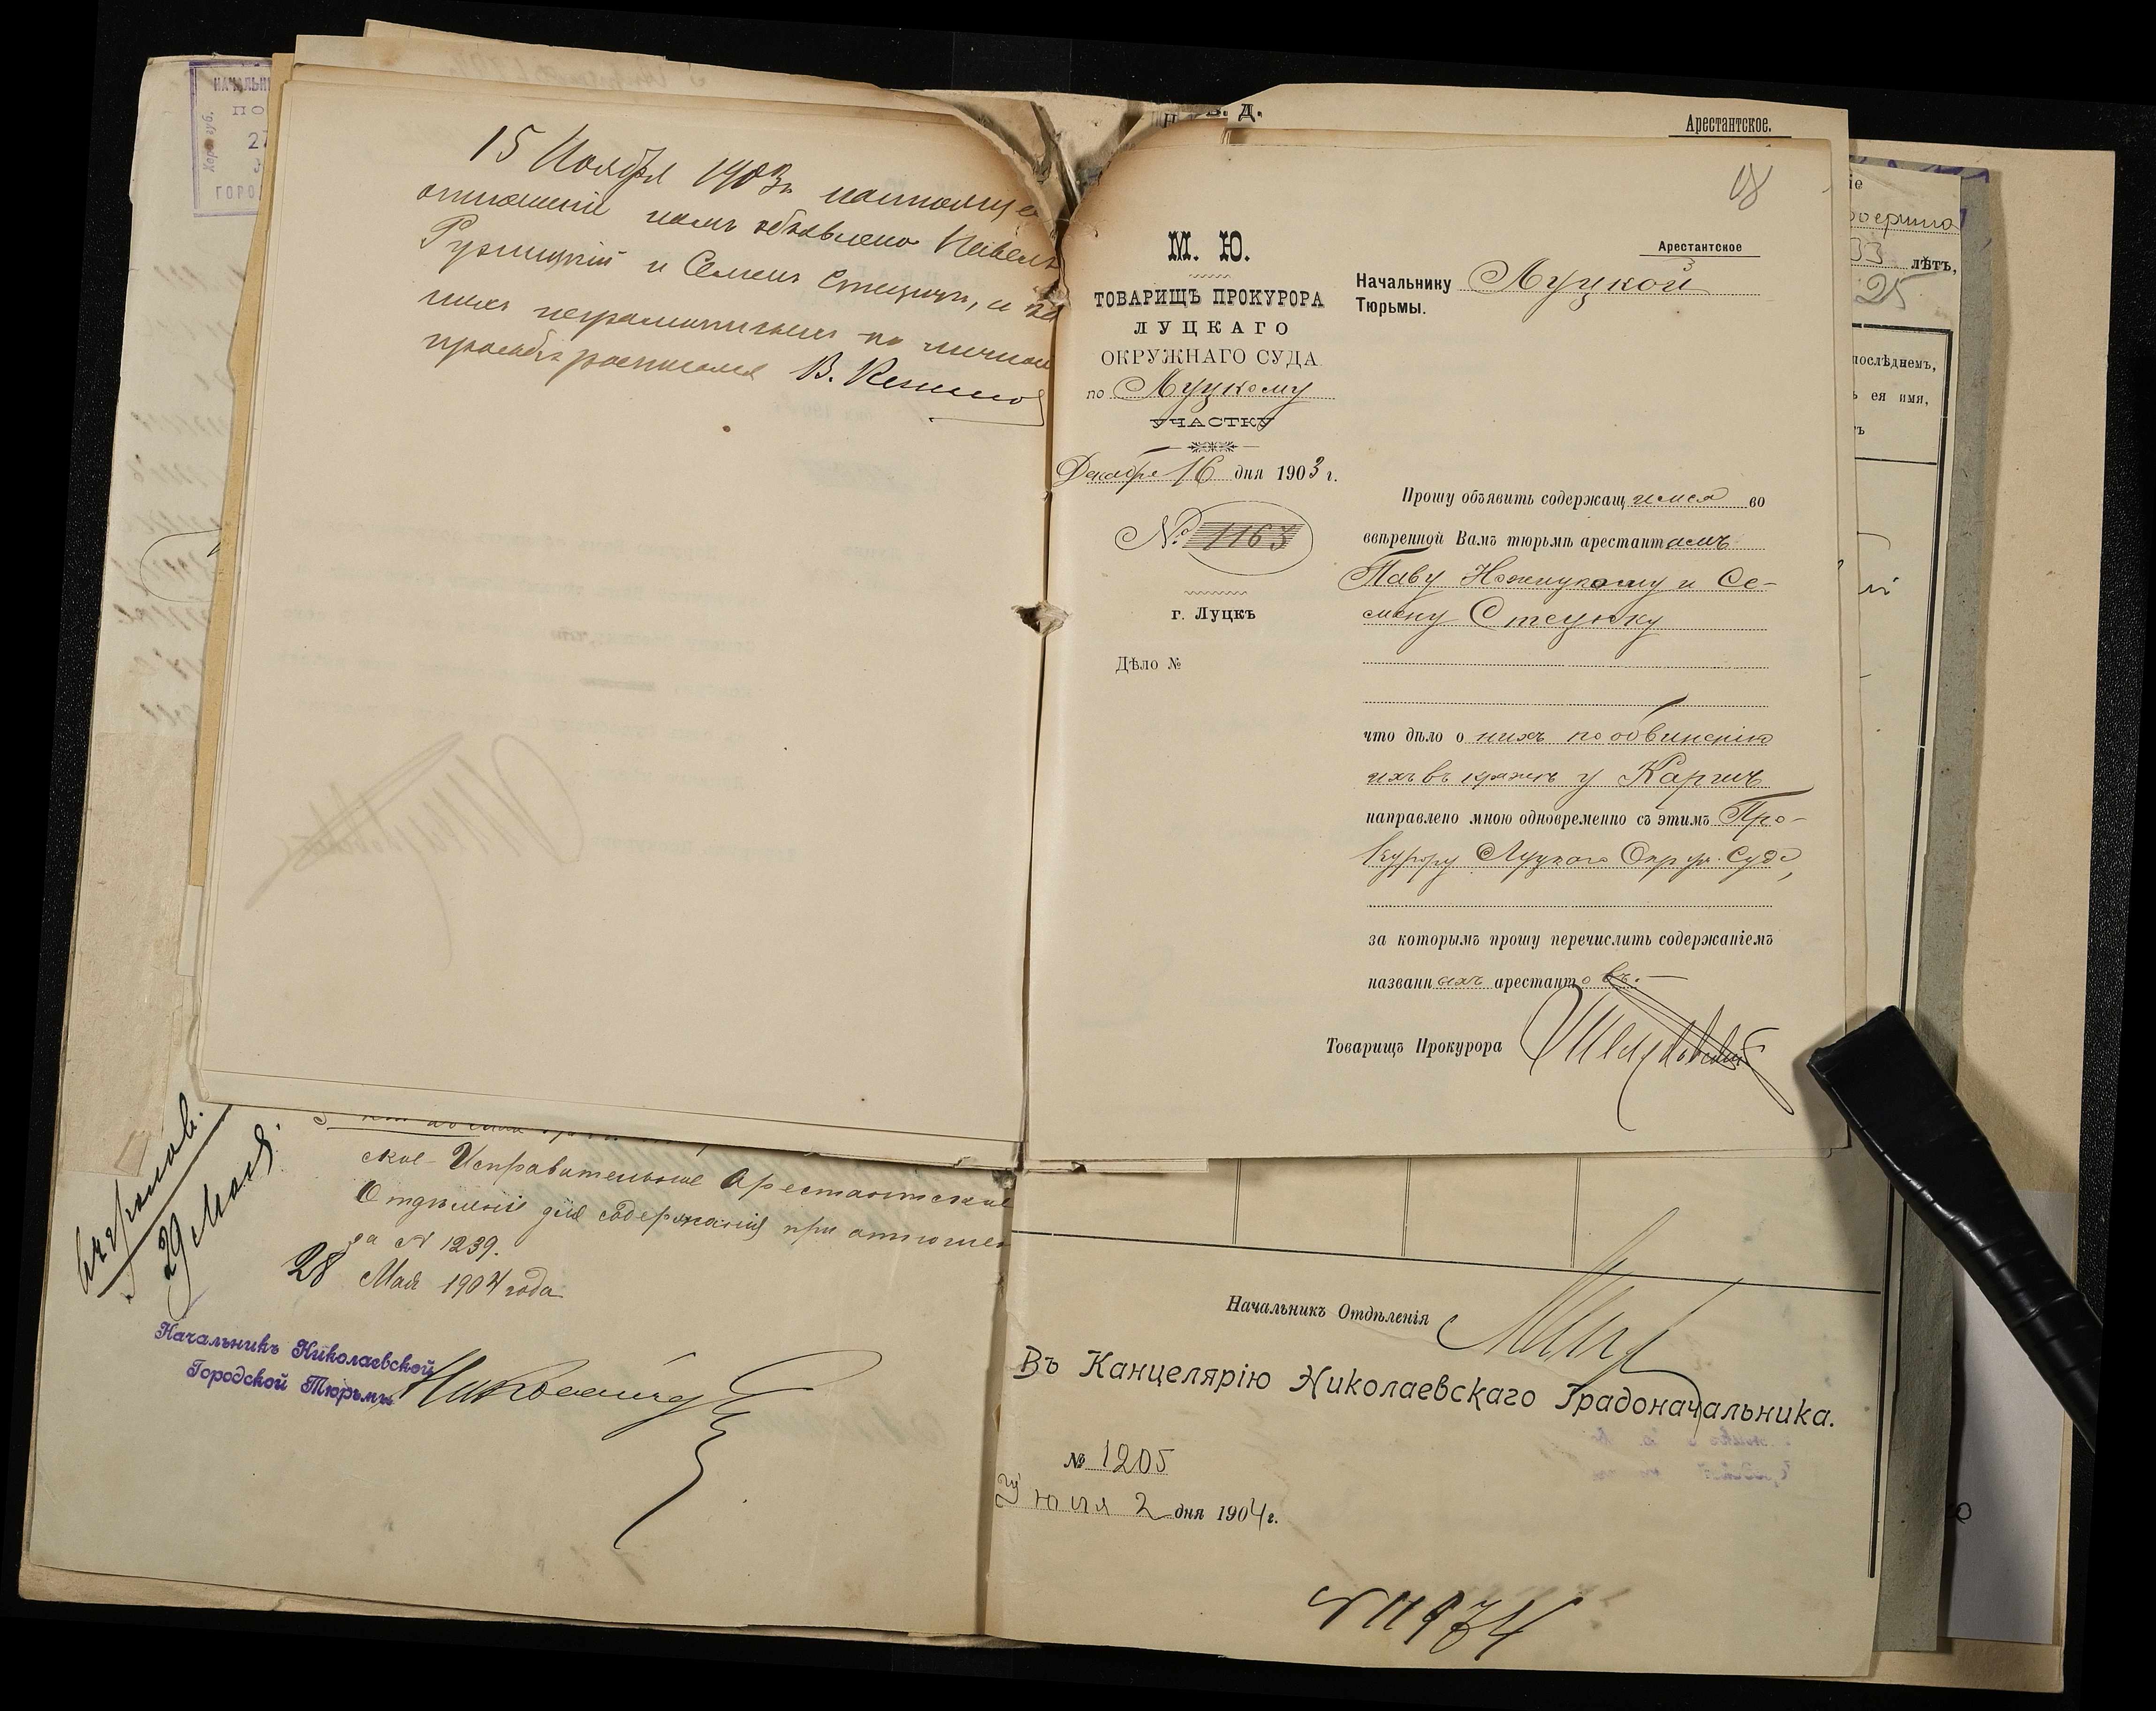 15 Ноября 1903 г. настоящее
отношеніе намъ объявлено Павелъ
и Семенъ Стецюкъ, и за
нихъ неграмотныхъ по личной
просьбѣ росписался В.
Арестантское.
М. Ю.
ТОВАРИЩЪ ПРОКУРОРА
ЛУЦКАГО
ОКРУЖНАГО СУДА
по Луцкому
УЧАСТКУ
Декабря 16 дня 1903 г.
№ 1163
г. Луцкъ
Дѣло №
Арестантское
Начальнику Луцкой
Тюрьмы.
Прошу объявить содержащимся во
ввѣренной Вамъ тюрьмѣ арестантамъ
Павлу и Се-
мену Стецюку
что дѣло о нихъ по обвиненію
ихъ въ кражѣ у
направлено мною одновременно съ этимъ Про-
курору Луцкаго Окруж. Суда,
за которымъ прошу перечислить содержаніемъ
названныхъ арестантовъ.
Товарищъ Прокурора
ское Исправительное Арестантское
Отдѣленіе для содержанія при отношен
за № 1239.
28 Мая 1904 года
29 Мая
Начальникъ Николаевской
Городской Тюрьмы
Начальникъ Отдѣленія
Въ Канцелярію Николаевскаго Градоначальника.
№ 1205
июля 2 дня 1904 г.
лѣтъ,
25
послѣднемъ,
ея имя,